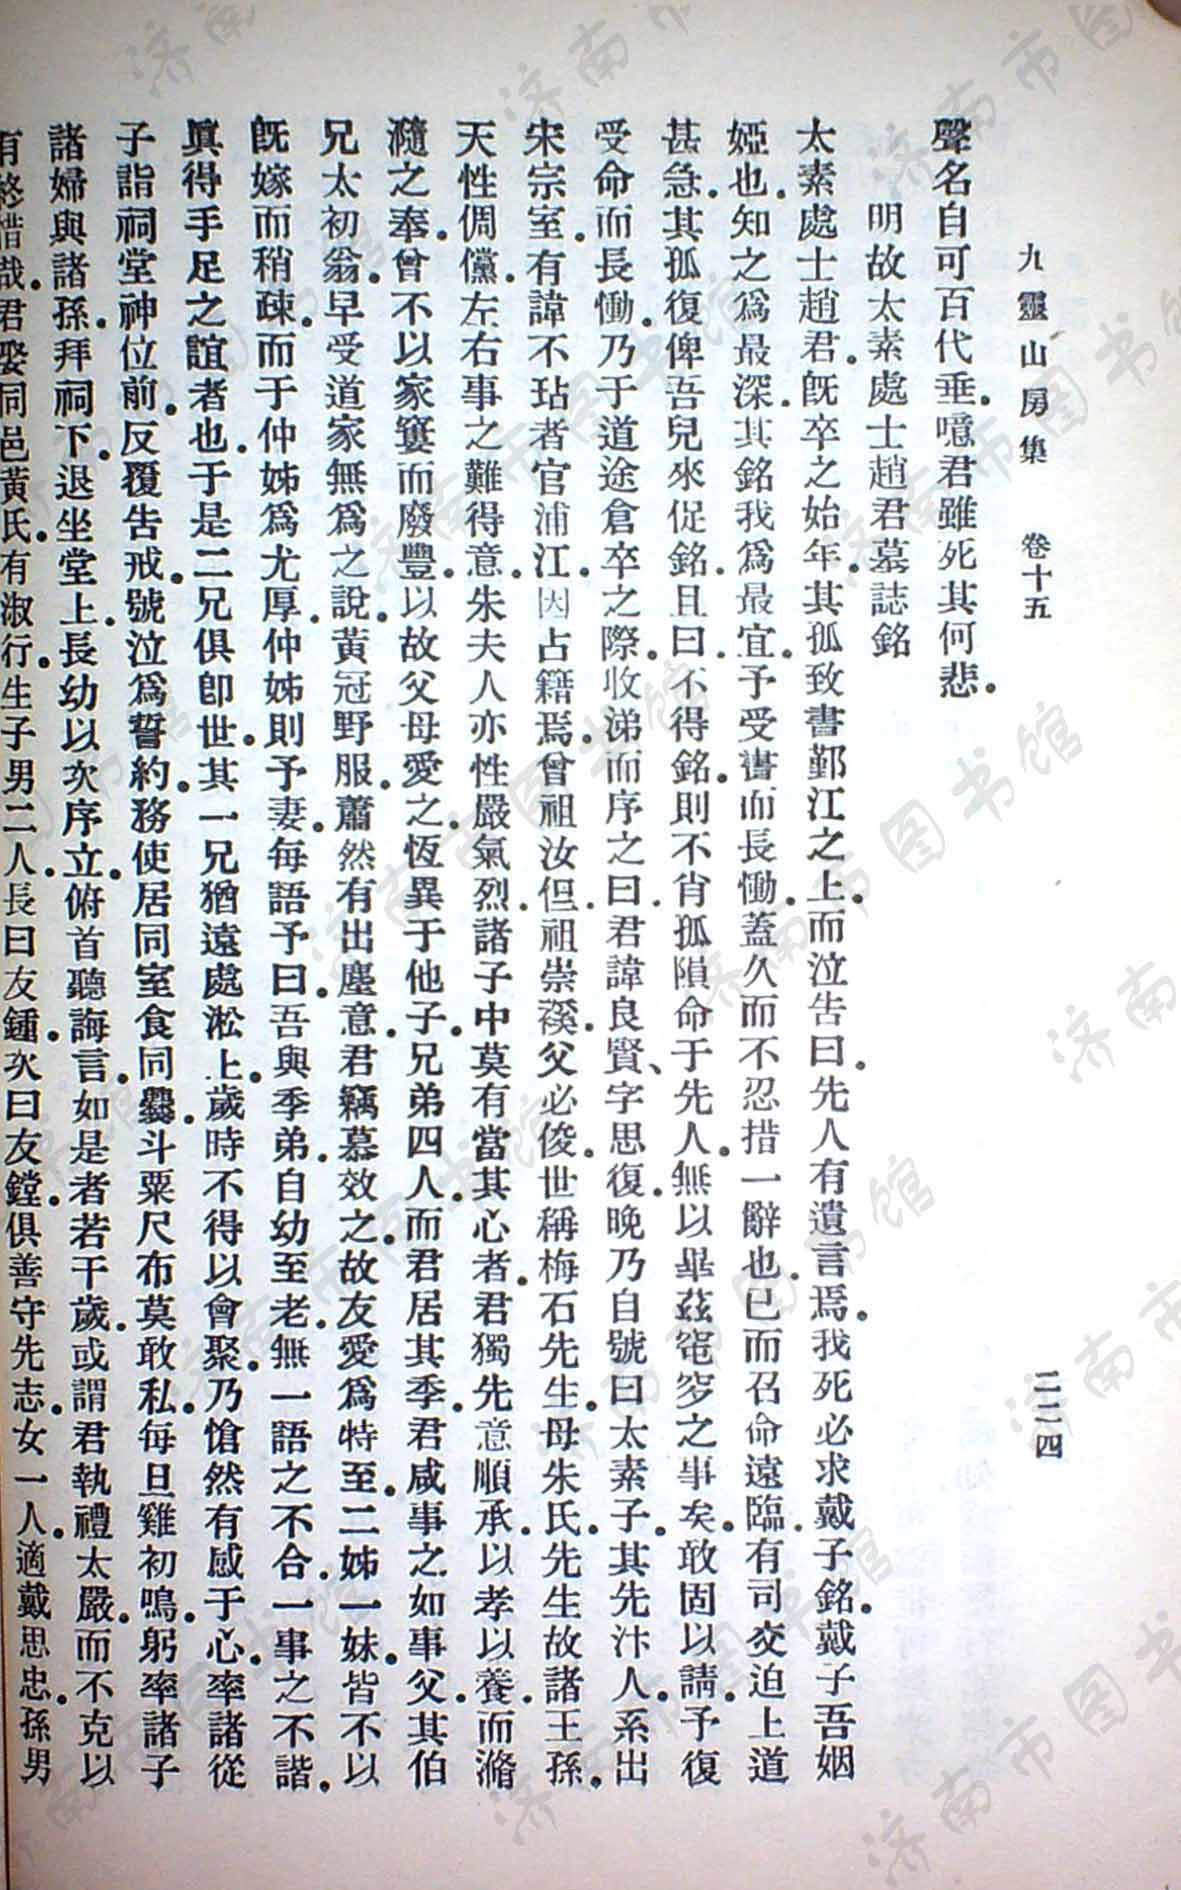 九靈山房集 卷十五 二二四
聲名自可百代垂。噫君雖死其何悲。
明故太素處士趙君墓誌銘
太素處士趙君。旣卒之始年。其孤致書鄞江之上。而泣告曰。先人有遺言焉。我死必求戴子銘。戴子吾姻
婭也。知之爲最深。其銘我爲最宜。予受書而長慟。蓋久而不忍措一辭也。已而召命遠臨。有司交迫上道
甚急。其孤復俾吾兒來促銘。且曰。不得銘。則不肖孤隕命于先人。無以畢茲窀穸之事矣。敢固以請。予復
受命而長慟。乃于道途倉卒之際。收涕而序之曰。君諱良賢、字思復。晚乃自號曰太素子。其先汴人。系出
宋宗室。有諱不玷者官浦江。因占籍焉。曾祖汝但。祖崇𥙿。父必俊。世稱梅石先生。母朱氏。先生故諸王孫。
天性倜儻。左右事之難得意。朱夫人亦性嚴氣烈。諸子中莫有當其心者。君獨先意順承。以孝以養。而滫
瀡之奉。曾不以家窶而廢豐。以故父母愛之。恆異于他子。兄弟四人。而君居其季。君咸事之如事父。其伯
兄太初翁。早受道家無爲之說。黃冠野服。蕭然有出塵意。君竊慕效之。故友愛爲特至。二姊一妹。皆不以
旣嫁而稍疎。而于仲姊爲尤厚。仲姊則予妻。每語予曰。吾與季弟。自幼至老。無一語之不合。一事之不諧。
眞得手足之誼者也。于是二兄俱卽世。其一兄猶遠處淞上。歲時不得以會聚。乃愴然有感于心。率諸從
子詣祠堂神位前。反覆告戒。號泣爲誓約。務使居同室食同爨。斗粟尺布莫敢私。每旦雞初鳴。躬率諸子
諸婦與諸孫。拜祠下。退坐堂上。長幼以次序立。俯首聽誨言。如是者若干歲。或謂君執禮太嚴。而不克以
有終惜哉。君娶同邑黃氏。有淑行。生子男二人。長曰友鍾。次曰友鏜。俱善守先志。女一人。適戴思忠。孫男